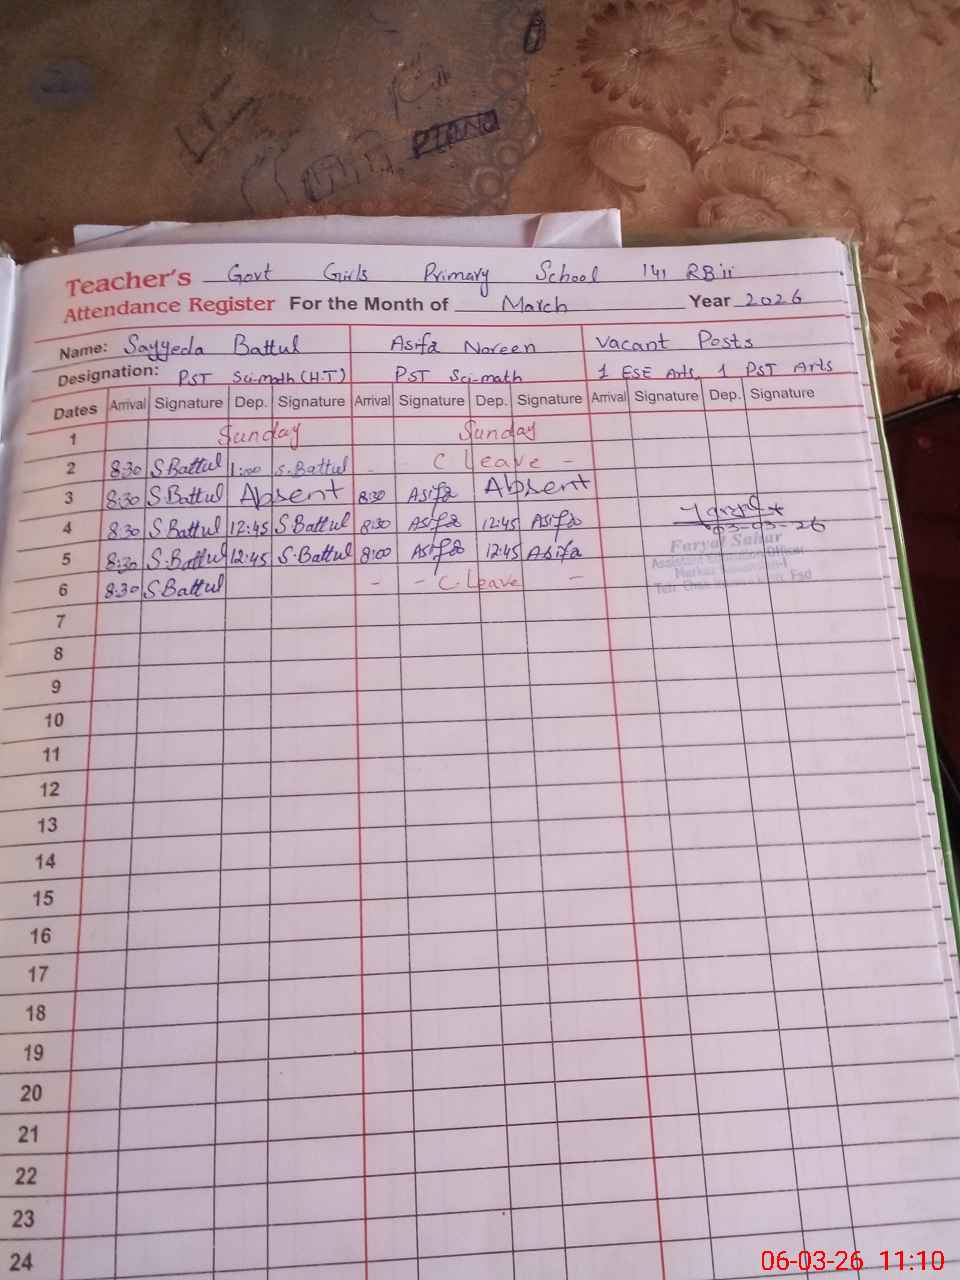 PIANO
Teacher's Govt Girls Primary School 141 RB ii
Attendance Register For the Month of March Year 2026
Name: Sayyeda Battul Asifa Noreen Vacant Posts
Designation: PST Sci-math (H.T) PST Sci-math 1 ESE Arts, 1 PST Arts
Dates Arrival Signature Dep. Signature Arrival Signature Dep. Signature Arrival Signature Dep. Signature
1 Sunday Sunday
2 8:30 S Battul 1:00 S. Battul - C Leave -
3 8:30 S Battul Absent 8:30 Asifa Absent
4 8:30 S Battul 12:45 S Battul 8:30 Asifa 12:45 Asifa
03-03-26
5 8:30 S.Battul 12:45 S.Battul 8:00 Asifa 12:45 Asifa
Faryal Sahar
Assistant Education Officer
6 8:30 S Battul - - C.Leave -
7
8
9
10
11
12
13
14
15
16
17
18
19
20
21
22
23
24
06-03-26 11:10